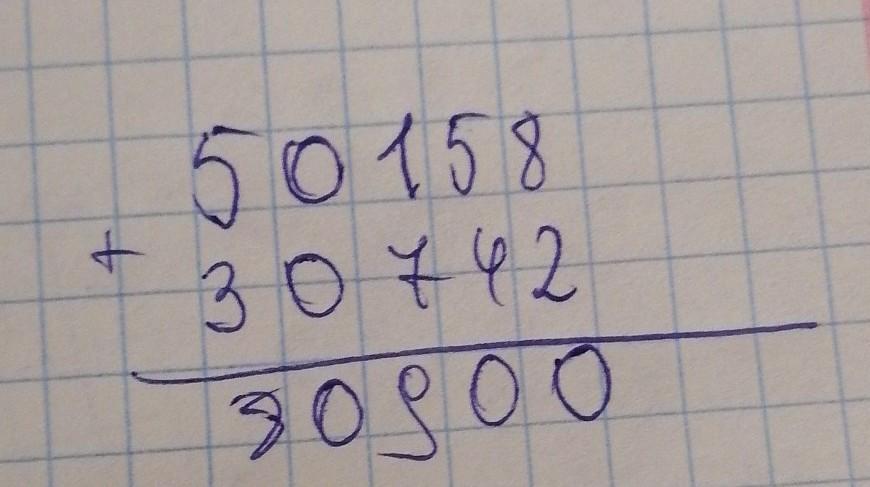 50158
+
30742
80900